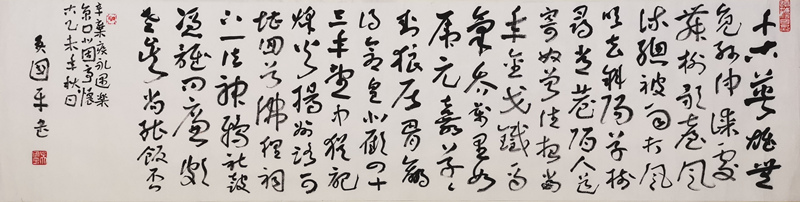 千古英雄無
覓孫仲謀處
舞榭歌臺風
流總被雨打風
吹去斜陽草樹
尋常巷陌人道
寄奴曾住想當
年金戈鐵馬
氣吞萬里如
虎元嘉草草
封狼居胥贏
得倉皇北顧四十
三年望中猶記
烽火揚州路可
堪回首佛狸祠
下一片神鴉社鼓
憑誰問廉頗
老矣尚能飯否
辛棄疾永遇樂
京口北固亭懷
古乙未年秋日
吳國平書